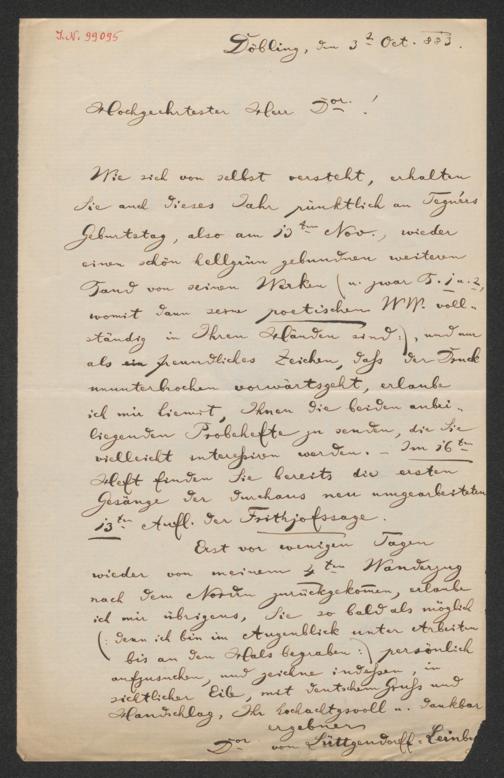 I.N. 99095
Döbling, den 3. Oct. 883.
Hochgeehrtester Herr Dor.!
Wie sich von selbst versteht, erhalten
Sie auch dieses Jahr pünktlich an Tegnérs
Geburtstag, also am 13ten Nov., wieder
einen schön hellgrün gebundnen weiteren
Band von seinen Werken (u. zwar T. 1 u. 2,
womit dann seine poetischen WW. voll-
ständig in Ihren Händen sind:), und nur
als ein freundliches Zeichen, daß der Druck
ununterbrochen vorwärtsgeht, erlaube
ich mir hiemit, Ihnen die beiden anbei-
liegenden Probehefte zu senden, die Sie
vielleicht interessiren werden. – Im 16ten
Heft finden Sie bereits die ersten
Gesänge der durchaus neu umgearbeiteten
13ten Aufl. der Frithjofssage.
Erst vor wenigen Tagen
wieder von meinem 4ten Wanderzug
nach dem Norden zurückgekommen, erlaube
ich mir übrigens, Sie so bald als möglich
(: denn ich bin im Augenblick unter Arbeiten
bis an den Hals begraben :) persönlich
aufzusuchen, und zeichne indessen, in
sichtlicher Eile, mit deutschem Gruß und
Handschlag, Ihr hochachtgsvoll u. dankbar
ergebner
Dor. von Lüttgendorff-Leinbg